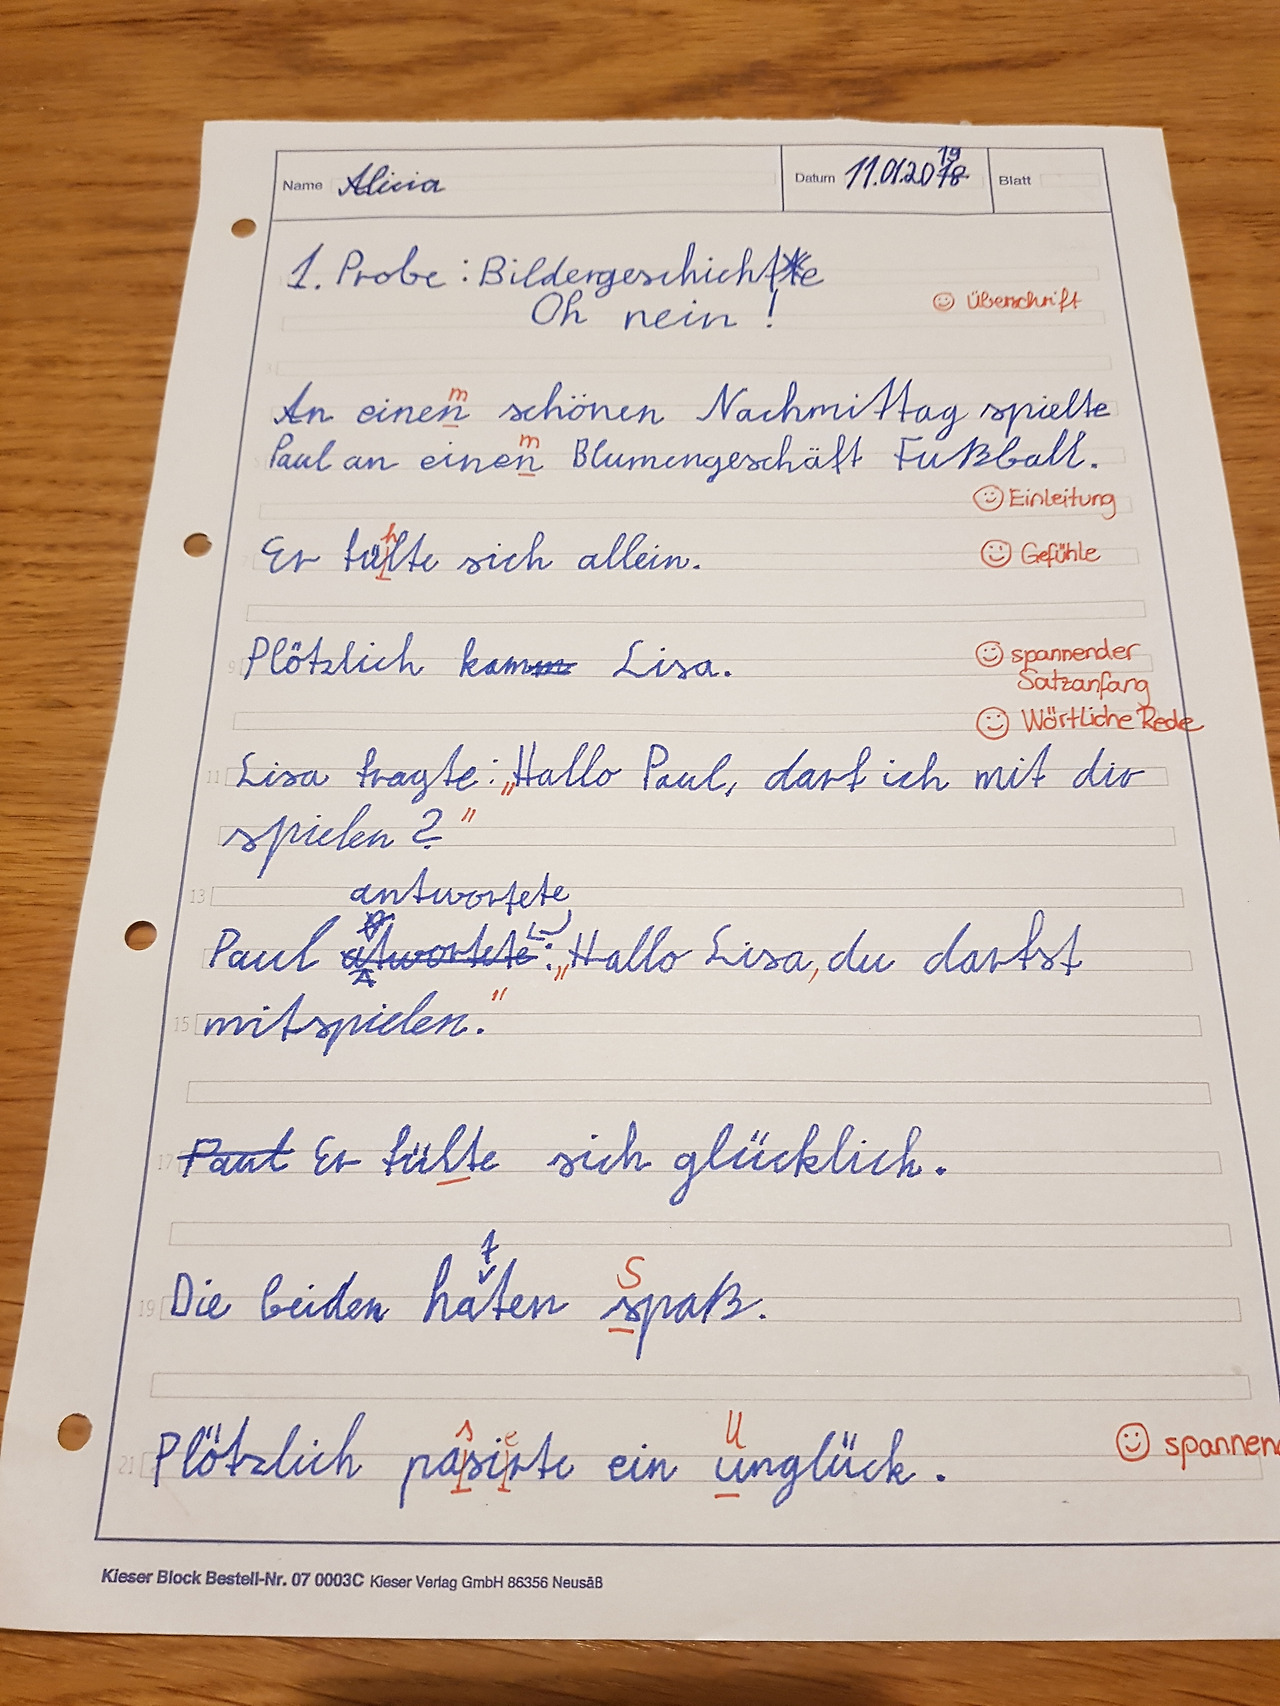 Name Alicia Datum 11.01.2018 19 Blatt
1. Probe : Bildergeschichte
Oh nein !
☺ Überschrift
m
An einen schönen Nachmittag spielte
m
Paul an einen Blumengeschäft Fußball.
☺ Einleitung
h
Er fülte sich allein.
☺ Gefühle
9 Plötzlich kamm Lisa.
☺ spannender
Satzanfang
☺ Wörtliche Rede
11 Lisa fragte: „Hallo Paul, darf ich mit dir
spielen ?"
13
antwortete
Paul atwortete: „Hallo Lisa, du darfst
15 mitspielen."
17 Paul Er fülte sich glücklich.
t S
19 Die beiden haten spaß.
s e U
21 Plötzlich pasirte ein unglück.
☺ spannend
Kieser Block Bestell-Nr. 07 0003C Kieser Verlag GmbH 86356 Neusäß